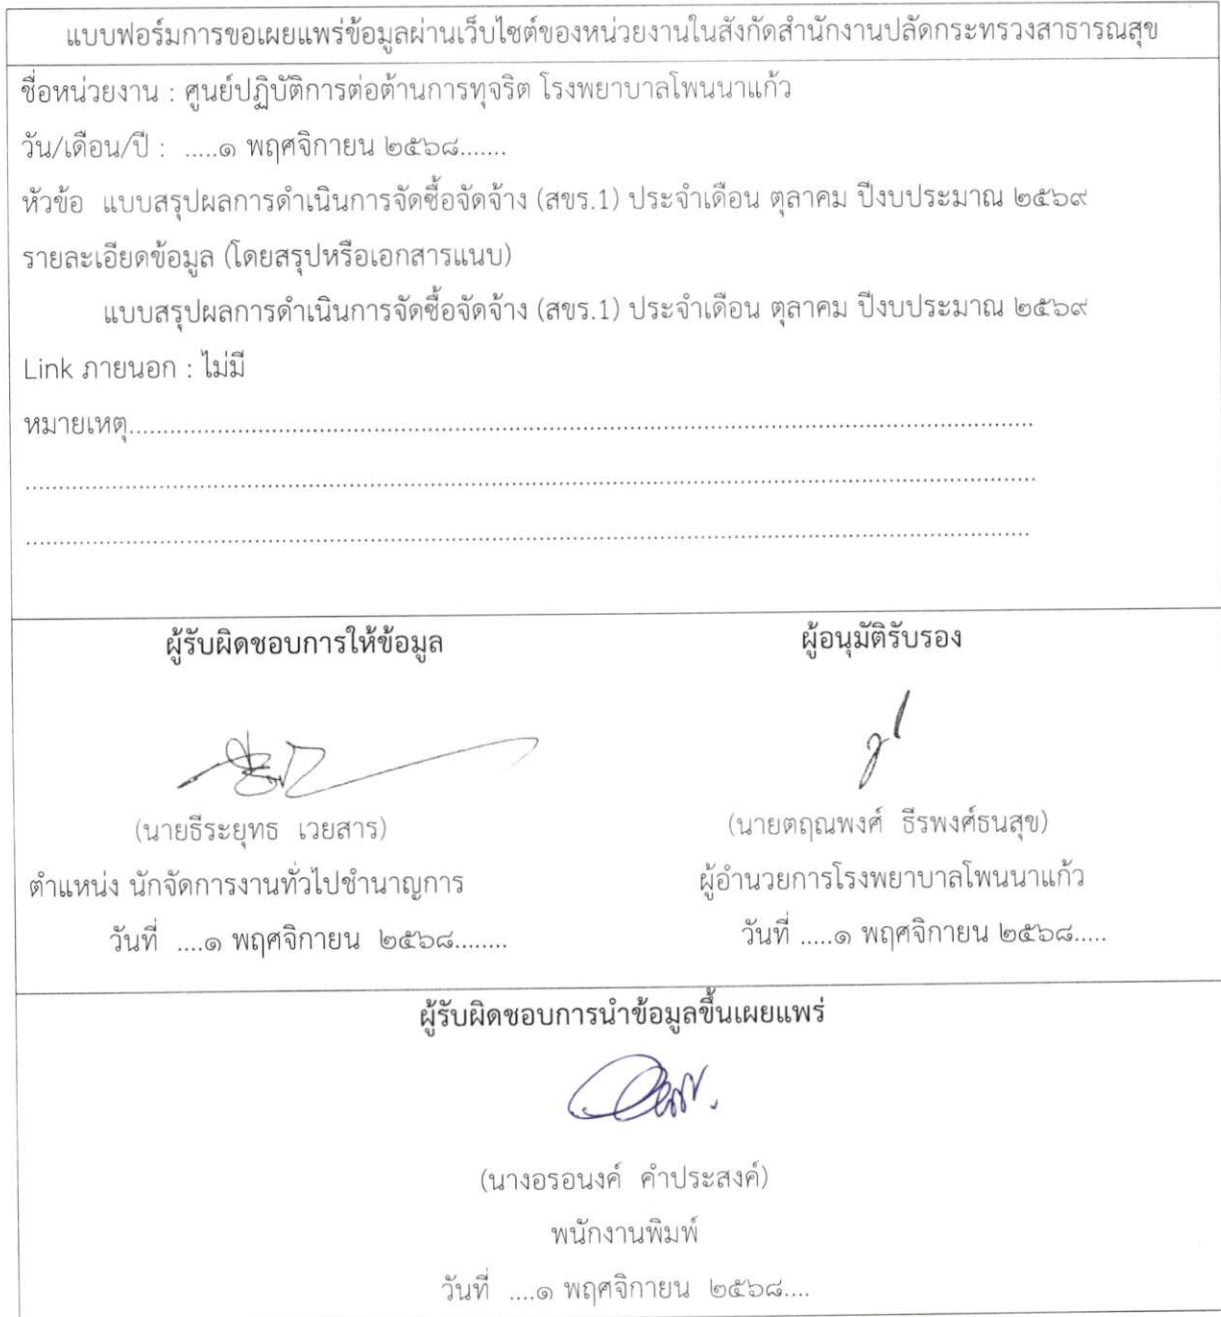 แบบฟอร์มการขอเผยแพร่ข้อมูลผ่านเว็บไซต์ของหน่วยงานในสังกัดสำนักงานปลัดกระทรวงสาธารณสุข
ชื่อหน่วยงาน : ศูนย์ปฏิบัติการต่อต้านการทุจริต โรงพยาบาลโพนนาแก้ว
วัน/เดือน/ปี : .....๑ พฤศจิกายน ๒๕๖๘.......
หัวข้อ แบบสรุปผลการดำเนินการจัดซื้อจัดจ้าง (สขร.1) ประจำเดือน ตุลาคม ปีงบประมาณ ๒๕๖๙
รายละเอียดข้อมูล (โดยสรุปหรือเอกสารแนบ)
แบบสรุปผลการดำเนินการจัดซื้อจัดจ้าง (สขร.1) ประจำเดือน ตุลาคม ปีงบประมาณ ๒๕๖๙
Link ภายนอก : ไม่มี
หมายเหตุ..........................................................................................................
..........................................................................................................
..........................................................................................................
ผู้รับผิดชอบการให้ข้อมูล
(นายธีระยุทธ เวยสาร)
ตำแหน่ง นักจัดการงานทั่วไปชำนาญการ
วันที่ ....๑ พฤศจิกายน ๒๕๖๘........
ผู้อนุมัติรับรอง
(นายตฤณพงศ์ ธีรพงศ์ธนสุข)
ผู้อำนวยการโรงพยาบาลโพนนาแก้ว
วันที่ .....๑ พฤศจิกายน ๒๕๖๘.....
ผู้รับผิดชอบการนำข้อมูลขึ้นเผยแพร่
(นางอรอนงค์ คำประสงค์)
พนักงานพิมพ์
วันที่ ....๑ พฤศจิกายน ๒๕๖๘....